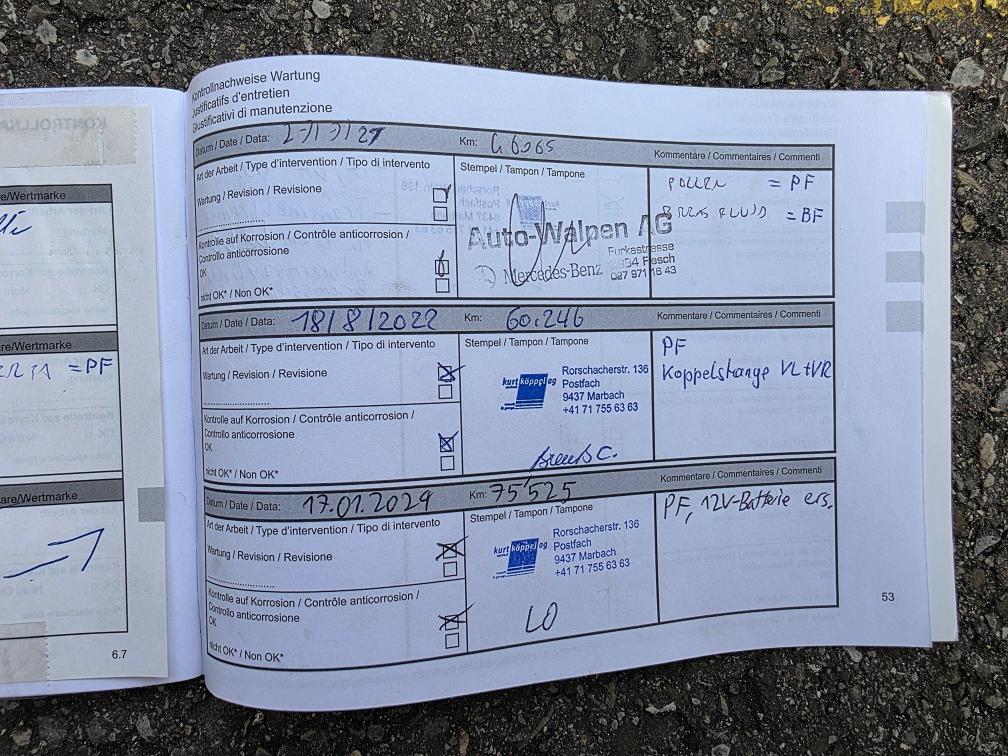 KONTROLLNA
re/Wertmarke
re/Wertmarke
= PF
are/Wertmarke
6.7
Kontrollnachweise Wartung
Justificatifs d'entretien
Giustificativi di manutenzione
Datum / Date / Data:
Km:
Kommentare / Commentaires / Commenti
Art der Arbeit / Type d'intervention / Tipo di intervento
Wartung / Revision / Revisione
Kontrolle auf Korrosion / Contrôle anticorrosion /
Controllo anticorrosione
OK
nicht OK* / Non OK*
Stempel / Tampon / Tampone
Auto-Walpen AG
Mercedes-Benz
Furkastrasse
Fiesch
027 971 16 43
POLLEN = PF
= BF
Datum / Date / Data: 18/8/2022
Km: 60.246
Kommentare / Commentaires / Commenti
Art der Arbeit / Type d'intervention / Tipo di intervento
Wartung / Revision / Revisione
Kontrolle auf Korrosion / Contrôle anticorrosion /
Controllo anticorrosione
OK
nicht OK* / Non OK*
Stempel / Tampon / Tampone
kurt köppel ag
Rorschacherstr. 136
Postfach
9437 Marbach
+41 71 755 63 63
PF
Koppelstange VL+VR
Datum / Date / Data: 17.01.2024
Km: 75525
Kommentare / Commentaires / Commenti
Art der Arbeit / Type d'intervention / Tipo di intervento
Wartung / Revision / Revisione
Kontrolle auf Korrosion / Contrôle anticorrosion /
Controllo anticorrosione
OK
nicht OK* / Non OK*
Stempel / Tampon / Tampone
kurt köppel ag
Rorschacherstr. 136
Postfach
9437 Marbach
+41 71 755 63 63
LO
PF, 12V-Batterie ers.
53